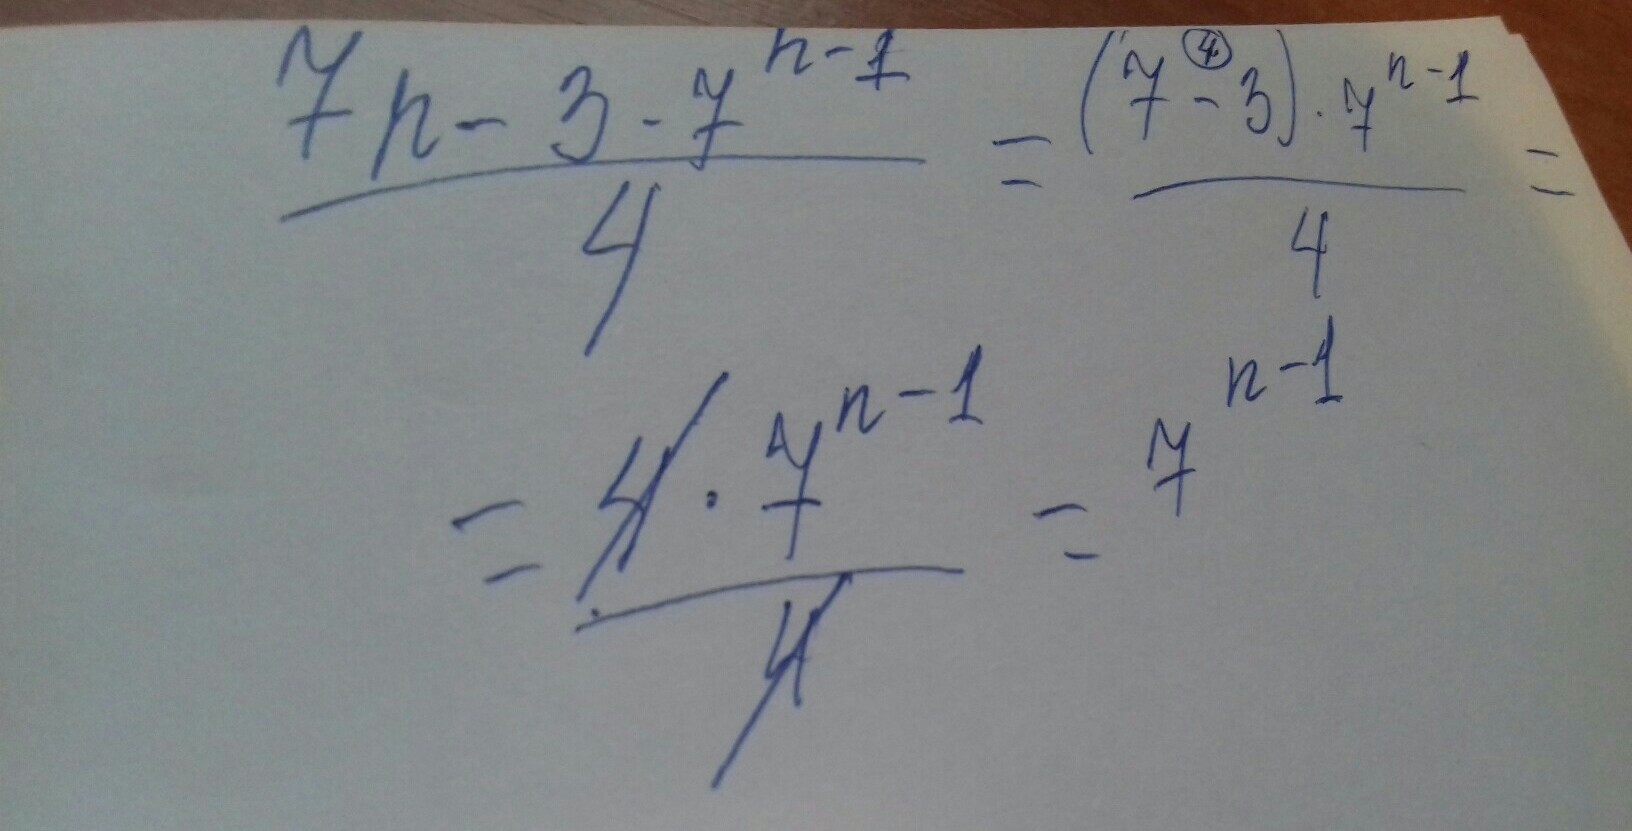 (7n - 3 · 7^(n-1))/4 = ((7 - 3) ④ · 7^(n-1))/4 =
= (4 · 7^(n-1))/4 = 7^(n-1)